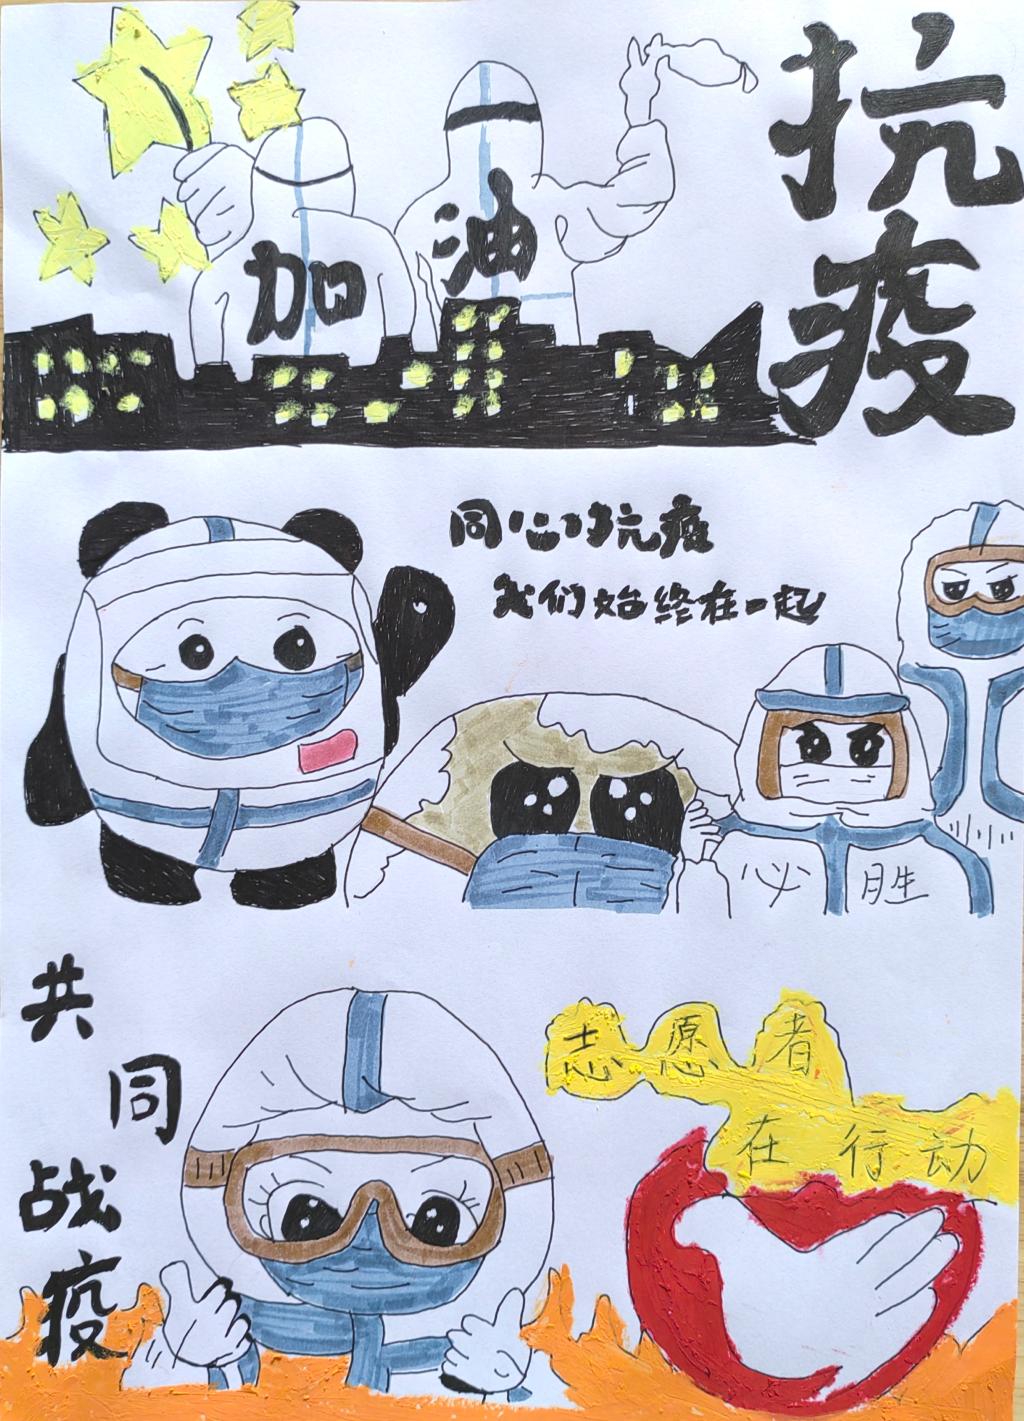 抗疫
加油
同心抗疫
我们始终在一起
必胜
共同战疫
志愿者
在行动